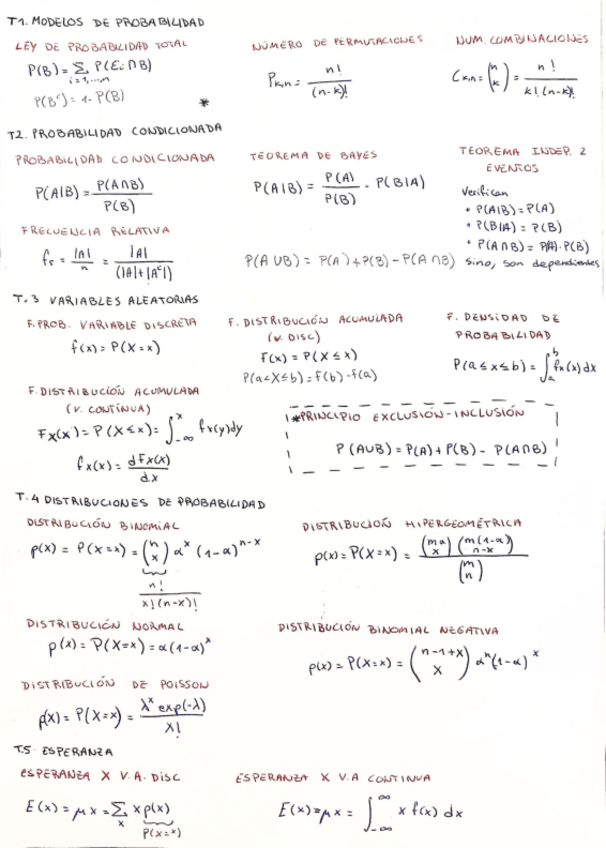 T1. MODELOS DE PROBABILIDAD
LEY DE PROBABILIDAD TOTAL
P(B) = Σ P(Ei ∩ B)
i=1,...,n
P(Bᶜ) = 1 - P(B)
*
NÚMERO DE PERMUTACIONES
Pk,n = n! / (n-k)!
NUM. COMBINACIONES
Ck,n = (n k) = n! / k!(n-k)!
T2. PROBABILIDAD CONDICIONADA
PROBABILIDAD CONDICIONADA
P(A|B) = P(A∩B) / P(B)
TEOREMA DE BAYES
P(A|B) = P(A) / P(B) · P(B|A)
TEOREMA INDEP. 2
EVENTOS
Verifican
• P(A|B) = P(A)
• P(B|A) = P(B)
• P(A∩B) = P(A)·P(B)
sino, son dependientes
FRECUENCIA RELATIVA
fr = |A| / n = |A| / (|A|+|Aᶜ|)
P(A∪B) = P(A) + P(B) - P(A∩B)
T.3 VARIABLES ALEATORIAS
F. PROB. VARIABLE DISCRETA
f(x) = P(X=x)
F. DISTRIBUCIÓN ACUMULADA
(v. DISC)
F(x) = P(X ≤ x)
P(a<X≤b) = F(b) - F(a)
F. DENSIDAD DE
PROBABILIDAD
P(a ≤ x ≤ b) = ∫ₐᵇ fx(x) dx
F. DISTRIBUCIÓN ACUMULADA
(v. CONTÍNUA)
Fx(x) = P(X ≤ x) = ∫₋∞ˣ fx(y)dy
fx(x) = dFx(x) / dx
*PRINCIPIO EXCLUSIÓN-INCLUSIÓN
P(A∪B) = P(A) + P(B) - P(A∩B)
T.4 DISTRIBUCIONES DE PROBABILIDAD
DISTRIBUCIÓN BINOMIAL
p(x) = P(X=x) = (n x) αˣ (1-α)ⁿ⁻ˣ
n! / x!(n-x)!
DISTRIBUCIÓN HIPERGEOMÉTRICA
p(x) = P(X=x) = (mα x) (m(1-α) n-x) / (m n)
DISTRIBUCIÓN NORMAL
p(x) = P(X=x) = α(1-α)ˣ
DISTRIBUCIÓN BINOMIAL NEGATIVA
p(x) = P(X=x) = (n-1+x x) αⁿ(1-α)ˣ
DISTRIBUCIÓN DE POISSON
p(x) = P(X=x) = λˣ exp(-λ) / x!
T.5 ESPERANZA
ESPERANZA X V.A. DISC
E(x) = μx = Σ x p(x)
x
P(X=x)
ESPERANZA X V.A CONTINUA
E(x) = μx = ∫₋∞^∞ x f(x) dx